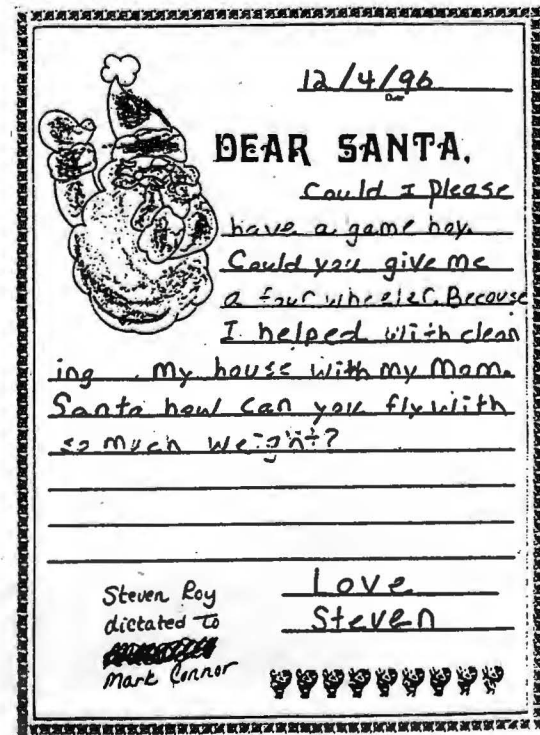 12/4/96
Date
DEAR SANTA,
Could I please
have a game boy.
Could you give me
a four wheeler. Because
I helped with clean
ing my house with my Mom.
Santa how can you fly with
so much weight?
Love
Steven
Steven Roy
dictated to
Mark Connor